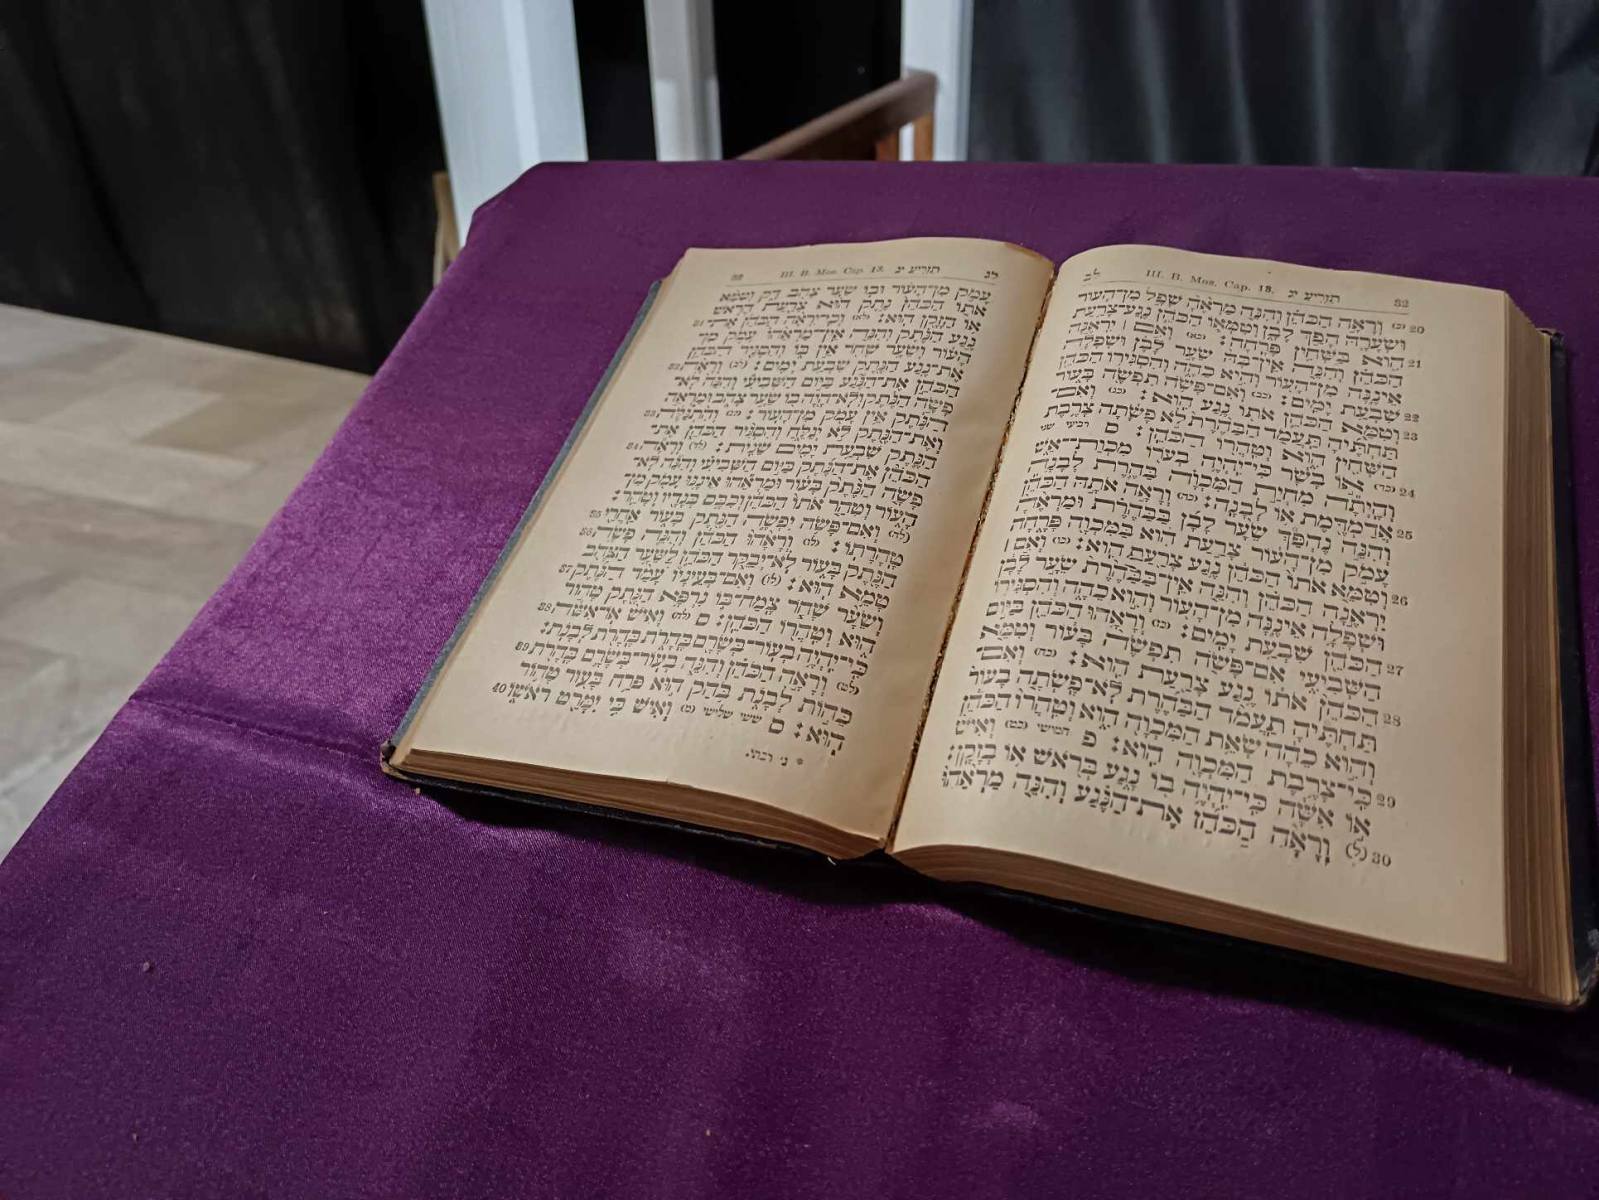 לב III. B. Mos. Cap. 13. תזריע יג 32
20 (כ) וְרָאָה הַכֹּהֵן וְהִנֵּה מַרְאֶהָ שָׁפָל מִן־הָעוֹר
וּשְׂעָרָהּ הָפַךְ לָבָן וְטִמְּאוֹ הַכֹּהֵן נֶגַע־צָרַעַת
21 הִוא בַּשְּׁחִין פָּרָחָה: (כא) וְאִם | יִרְאֶנָּה
הַכֹּהֵן וְהִנֵּה אֵין־בָּהּ שֵׂעָר לָבָן וּשְׁפָלָה
אֵינֶנָּה מִן־הָעוֹר וְהִיא כֵהָה וְהִסְגִּירוֹ הַכֹּהֵן
22 שִׁבְעַת יָמִים: (כב) וְאִם־פָּשֹׂה תִפְשֶׂה בָּעוֹר
23 וְטִמֵּא הַכֹּהֵן אֹתוֹ נֶגַע הִוא: (כג) וְאִם־
תַּחְתֶּיהָ תַּעֲמֹד הַבַּהֶרֶת לֹא פָשָׂתָה צָרֶבֶת
הַשְּׁחִין הִוא וְטִהֲרוֹ הַכֹּהֵן: ס רביעי שני
24 (כד) אוֹ בָשָׂר כִּי־יִהְיֶה בְעֹרוֹ מִכְוַת־אֵשׁ
וְהָיְתָה מִחְיַת הַמִּכְוָה בַּהֶרֶת לְבָנָה
25 אֲדַמְדֶּמֶת אוֹ לְבָנָה: (כה) וְרָאָה אֹתָהּ הַכֹּהֵן
וְהִנֵּה נֶהְפַּךְ שֵׂעָר לָבָן בַּבַּהֶרֶת וּמַרְאֶהָ
עָמֹק מִן־הָעוֹר צָרַעַת הִוא בַּמִּכְוָה פָּרָחָה
26 וְטִמֵּא אֹתוֹ הַכֹּהֵן נֶגַע צָרַעַת הִוא: (כו) וְאִם |
יִרְאֶנָּה הַכֹּהֵן וְהִנֵּה אֵין־בַּבַּהֶרֶת שֵׂעָר לָבָן
וּשְׁפָלָה אֵינֶנָּה מִן־הָעוֹר וְהִוא כֵהָה וְהִסְגִּירוֹ
27 הַכֹּהֵן שִׁבְעַת יָמִים: (כז) וְרָאָהוּ הַכֹּהֵן בַּיּוֹם
הַשְּׁבִיעִי אִם־פָּשֹׂה תִפְשֶׂה בָּעוֹר וְטִמֵּא
28 הַכֹּהֵן אֹתוֹ נֶגַע צָרַעַת הִוא: (כח) וְאִם־
תַּחְתֶּיהָ תַעֲמֹד הַבַּהֶרֶת לֹא־פָשְׂתָה בָעוֹר
וְהִוא כֵהָה שְׂאֵת הַמִּכְוָה הִוא וְטִהֲרוֹ הַכֹּהֵן
29 כִּי־צָרֶבֶת הַמִּכְוָה הִוא: פ חמישי (כט) וְאִישׁ
אוֹ אִשָּׁה כִּי־יִהְיֶה בוֹ נָגַע בְּרֹאשׁ אוֹ בְזָקָן:
30 (ל) וְרָאָה הַכֹּהֵן אֶת־הַנֶּגַע וְהִנֵּה מַרְאֵהוּ
33 III. B. Mos. Cap. 13. תזריע יג לג
עָמֹק מִן־הָעוֹר וּבוֹ שֵׂעָר צָהֹב דָּק וְטִמֵּא
אֹתוֹ הַכֹּהֵן נֶתֶק הוּא צָרַעַת הָרֹאשׁ
31 אוֹ הַזָּקָן הוּא: (לא) וְכִי־יִרְאֶה הַכֹּהֵן אֶת־
נֶגַע הַנֶּתֶק וְהִנֵּה אֵין־מַרְאֵהוּ עָמֹק מִן־
הָעוֹר וְשֵׂעָר שָׁחֹר אֵין בּוֹ וְהִסְגִּיר הַכֹּהֵן
32 אֶת־נֶגַע הַנֶּתֶק שִׁבְעַת יָמִים: (לב) וְרָאָה
הַכֹּהֵן אֶת־הַנֶּגַע בַּיּוֹם הַשְּׁבִיעִי וְהִנֵּה לֹא־
פָשָׂה הַנֶּתֶק וְלֹא־הָיָה בוֹ שֵׂעָר צָהֹב וּמַרְאֵה
33 הַנֶּתֶק אֵין עָמֹק מִן־הָעוֹר: (לג) וְהִתְגַּלָּח
וְאֶת־הַנֶּתֶק לֹא יְגַלֵּחַ וְהִסְגִּיר הַכֹּהֵן אֶת־
34 הַנֶּתֶק שִׁבְעַת יָמִים שֵׁנִית: (לד) וְרָאָה
הַכֹּהֵן אֶת־הַנֶּתֶק בַּיּוֹם הַשְּׁבִיעִי וְהִנֵּה לֹא־
פָשָׂה הַנֶּתֶק בָּעוֹר וּמַרְאֵהוּ אֵינֶנּוּ עָמֹק מִן־
הָעוֹר וְטִהַר אֹתוֹ הַכֹּהֵן וְכִבֶּס בְּגָדָיו וְטָהֵר:
35 (לה) וְאִם־פָּשֹׂה יִפְשֶׂה הַנֶּתֶק בָּעוֹר אַחֲרֵי
36 טָהֳרָתוֹ: (לו) וְרָאָהוּ הַכֹּהֵן וְהִנֵּה פָּשָׂה
הַנֶּתֶק בָּעוֹר לֹא־יְבַקֵּר הַכֹּהֵן לַשֵּׂעָר הַצָּהֹב
37 טָמֵא הוּא: (לז) וְאִם־בְּעֵינָיו עָמַד הַנֶּתֶק
וְשֵׂעָר שָׁחֹר צָמַח־בּוֹ נִרְפָּא הַנֶּתֶק טָהוֹר
38 הוּא וְטִהֲרוֹ הַכֹּהֵן: ס (לח) וְאִישׁ אוֹ־אִשָּׁה
כִּי־יִהְיֶה בְעוֹר־בְּשָׂרָם בֶּהָרֹת בֶּהָרֹת לְבָנֹת:
39 (לט) וְרָאָה הַכֹּהֵן וְהִנֵּה בְעוֹר־בְּשָׂרָם בֶּהָרֹת
כֵּהוֹת לְבָנֹת בֹּהַק הוּא פָּרַח בָּעוֹר טָהוֹר
40 הוּא: ס ששי שלישי (מ) וְאִישׁ כִּי יִמָּרֵט רֹאשׁוֹ